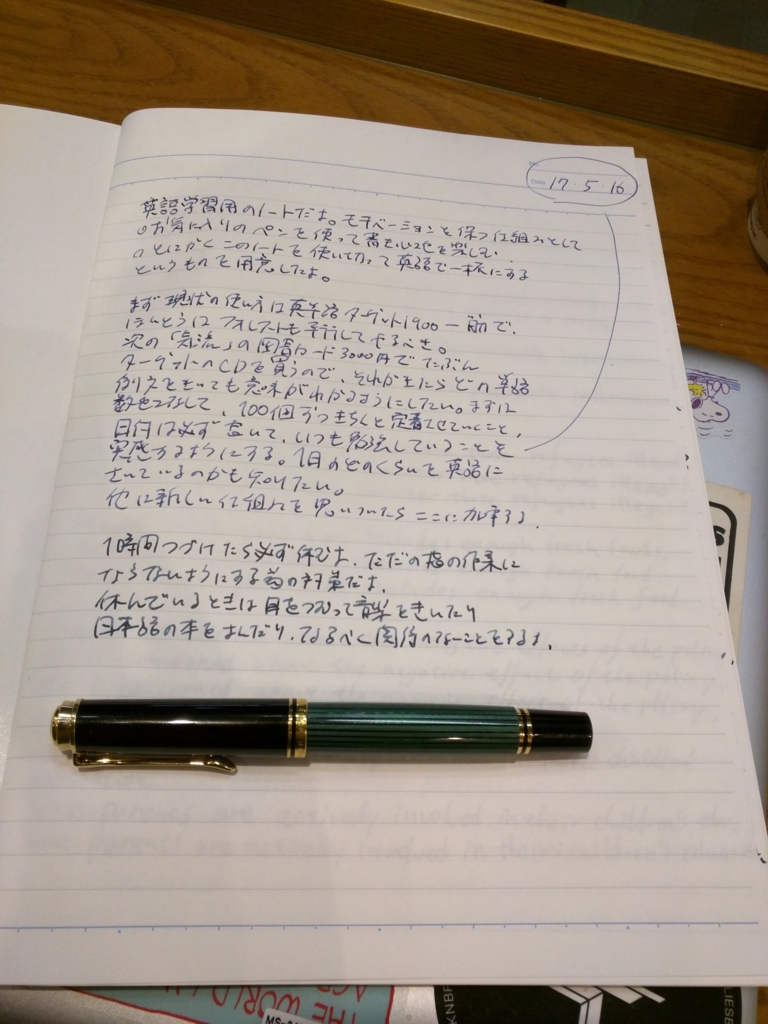 Date 17・5・16
英語学習用のノートだよ。モチベーションを保つ仕組みとして
○お気に入りのペンを使って書き心地を楽しむ。
○とにかくこのノートを使い切って英語で一杯にする
というものを用意したよ。
まず現状の使い方は英単語ターゲット1900一筋で、
ほんとうはフォレストも平行してやるべき。
次の「気流」の図書カード3000円でたぶん
ターゲットのCDを買うので、それがまにらどの単語
例文をきいても意味がわかるようにしたい。まずは
数をこなして、100個ずつきちんと定着させていくこと。
日付は必ず書いて、いつも勉強していることを
実感するようにする。1日のどのくらいを英語に
さいているのかも知りたい。
他に新しい仕組みを思いついたらここに加筆する。
1時間つづけたら必ず休むよ、ただの指の作業に
ならないようにする為の対策だよ。
休んでいるときは目をつむって音楽をきいたり
日本語の本をよんだり、なるべく関係ないことをするよ。
THE WORLD
MS-
KNBR
LIESE